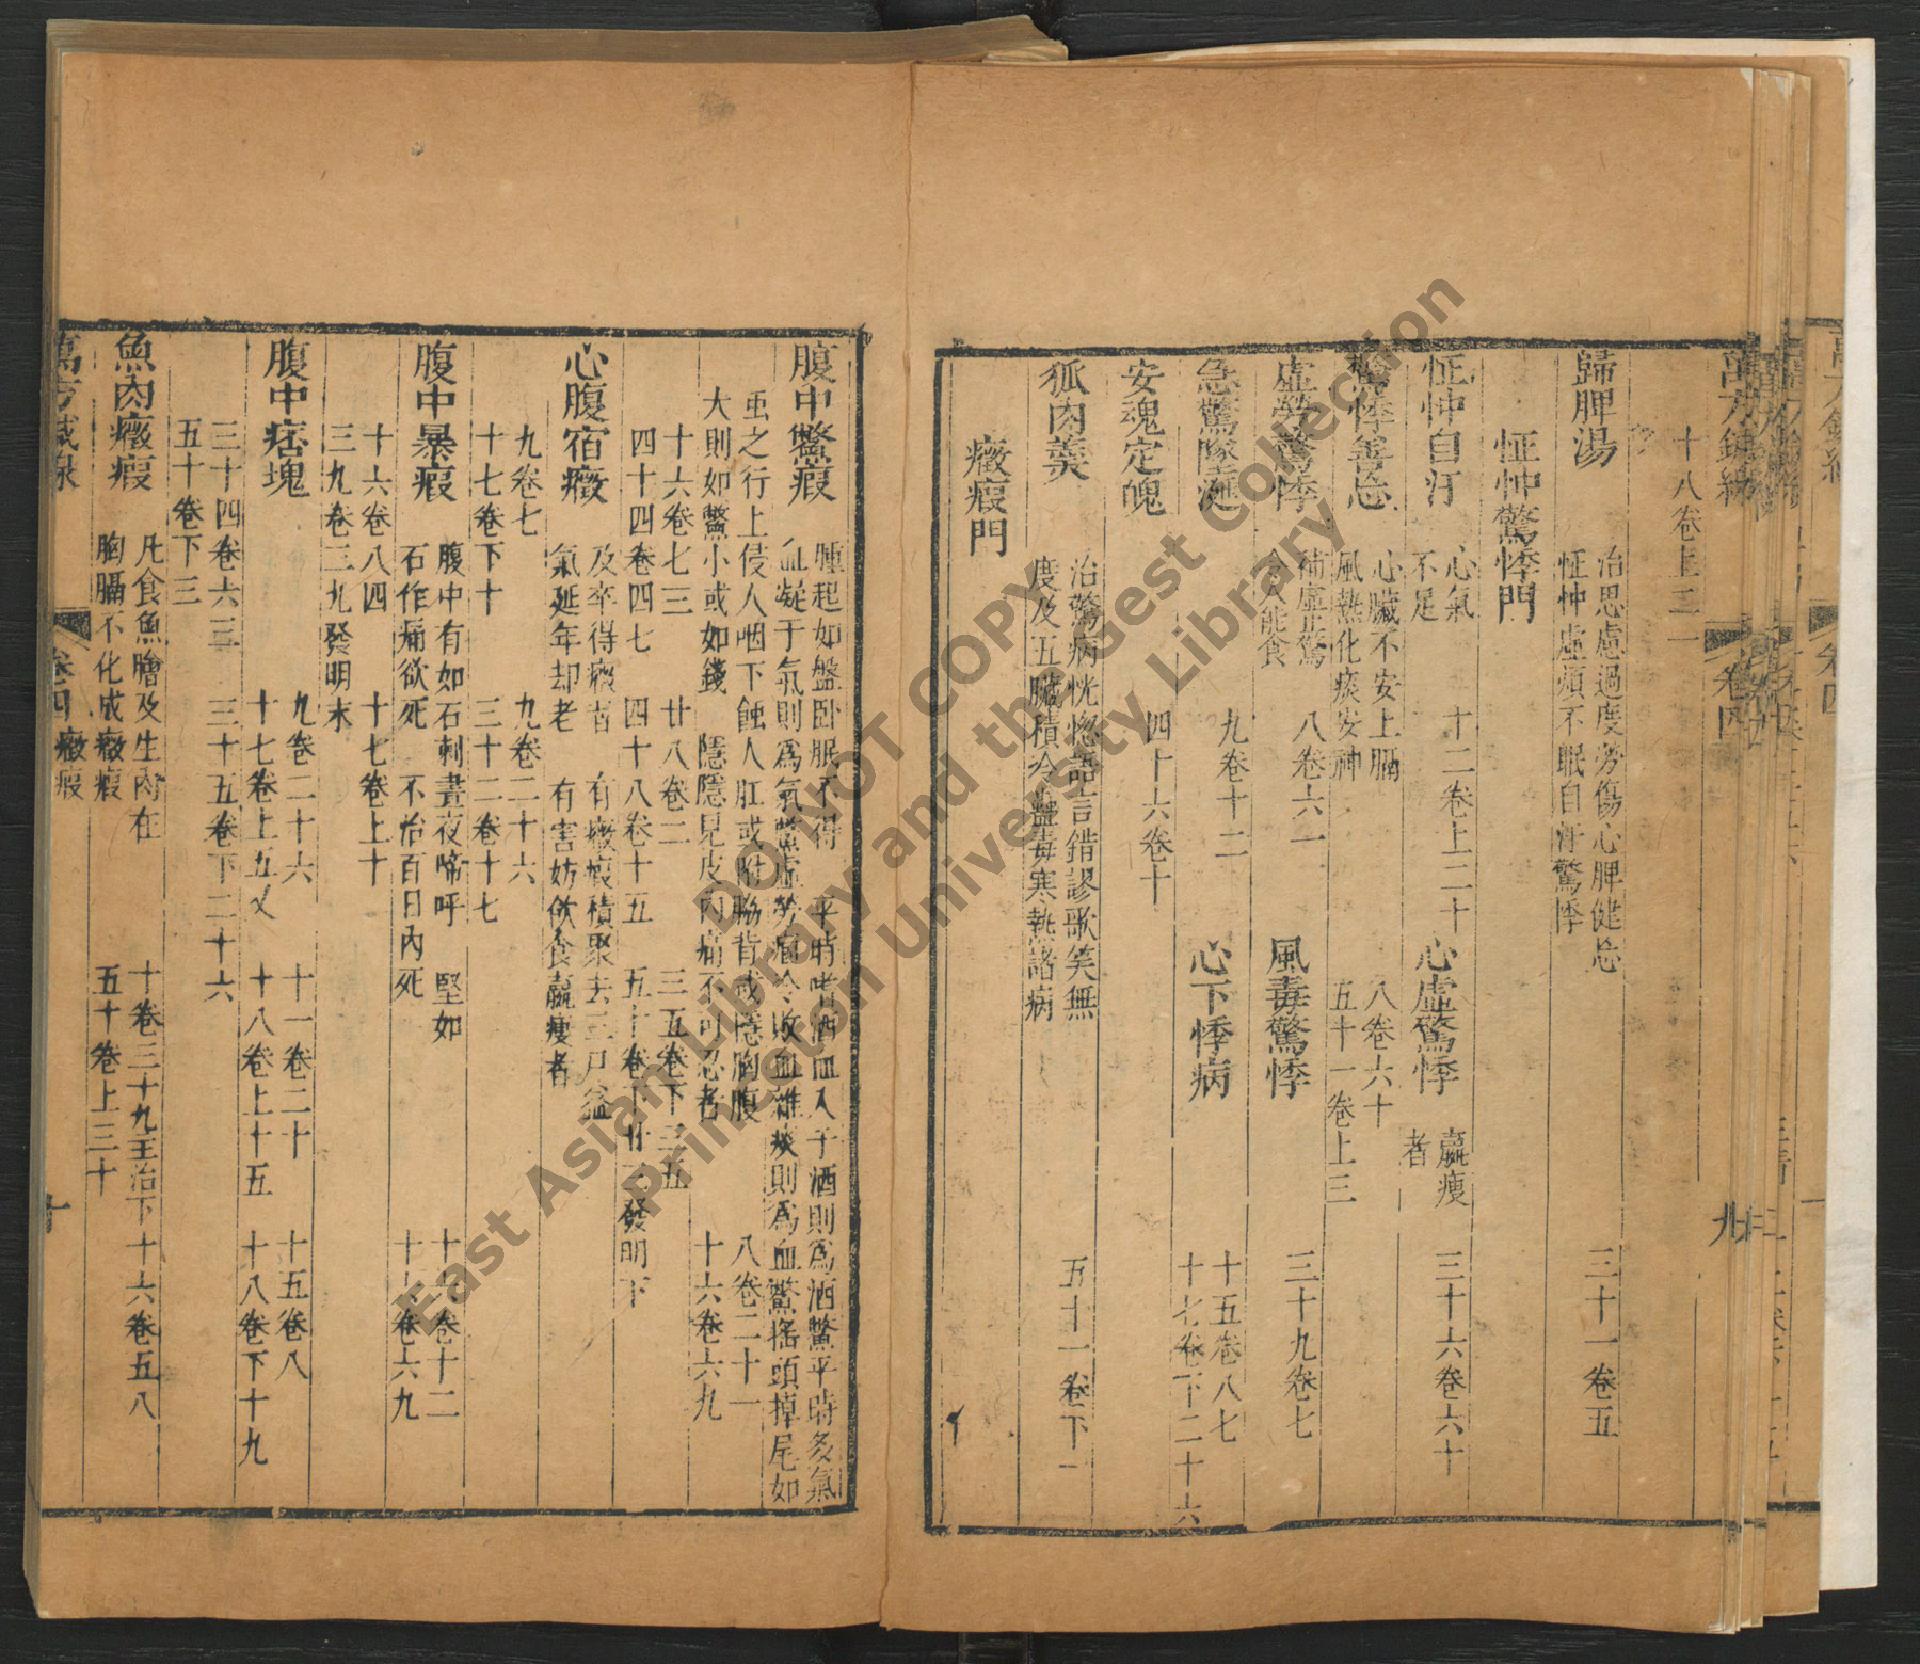 十八卷上三一
歸脾湯 治思慮過度勞傷心脾健忘
怔忡虛煩不眠自汗驚悸 三十一卷五
怔忡驚悸門
怔忡自汗 心氣不足 十二卷上二十 心虛驚悸 羸瘦者 三十六卷六十
驚悸善忘 心臟不安上膈 八卷六十
風熱化痰安神 五十一卷上三
虛勞驚悸 補虛止驚 令人能食 八卷六一 風毒驚悸 三十九卷七
急驚墜涎 九卷十二 心下悸病 十五卷八七
十七卷下二十六
安魂定魄 四十六卷十
狐肉羹 治驚病恍惚語言錯謬歌笑無
度及五臟積冷蠱毒寒熱諸病 五十一卷下一
癥瘕門
萬方鍼線 卷四 九
腹中鱉瘕 腫起如盤臥眠不得 平時嗜酒血入于酒則爲酒鱉平時多氣
血凝于氣則爲氣鱉虛勞痼冷敗血雜痰則爲血鱉搖頭掉尾如
虫之行上侵人咽下蝕人肛或附脇背或隱胸腹 八卷二十一
大則如鱉小或如錢 隱隱見皮內痛不可忍者 十六卷六九
十六卷七三 廿八卷二 三五卷下三五
四十四卷四七 四十八卷十五 五十一卷下廿二發明下
心腹宿癥 及卒得癥者 有癥瘕積聚去三尸益
氣延年却老 有害妨飲食羸瘦者
九卷七 九卷二十六
十七卷下十 三十二卷十七
腹中暴瘕 腹中有如石刺晝夜啼呼 堅如
石作痛欲死 不治百日內死
十六卷八四 十七卷上十
三九卷三九發明末
腹中痞塊 九卷二十六 十一卷二十 十五卷八
十七卷上五乂 十八卷上十五 十八卷下十九
三十四卷六三 三十五卷下二十六
五十卷下三
魚肉癥瘕 凡食魚膾及生肉在 十卷三十九主治下 十六卷五八
胸膈不化成癥瘕 五十卷上三十
萬方鍼線 卷四 癥瘕 十
East Asian Library and the Gest Collection
Princeton University Library
DO NOT COPY